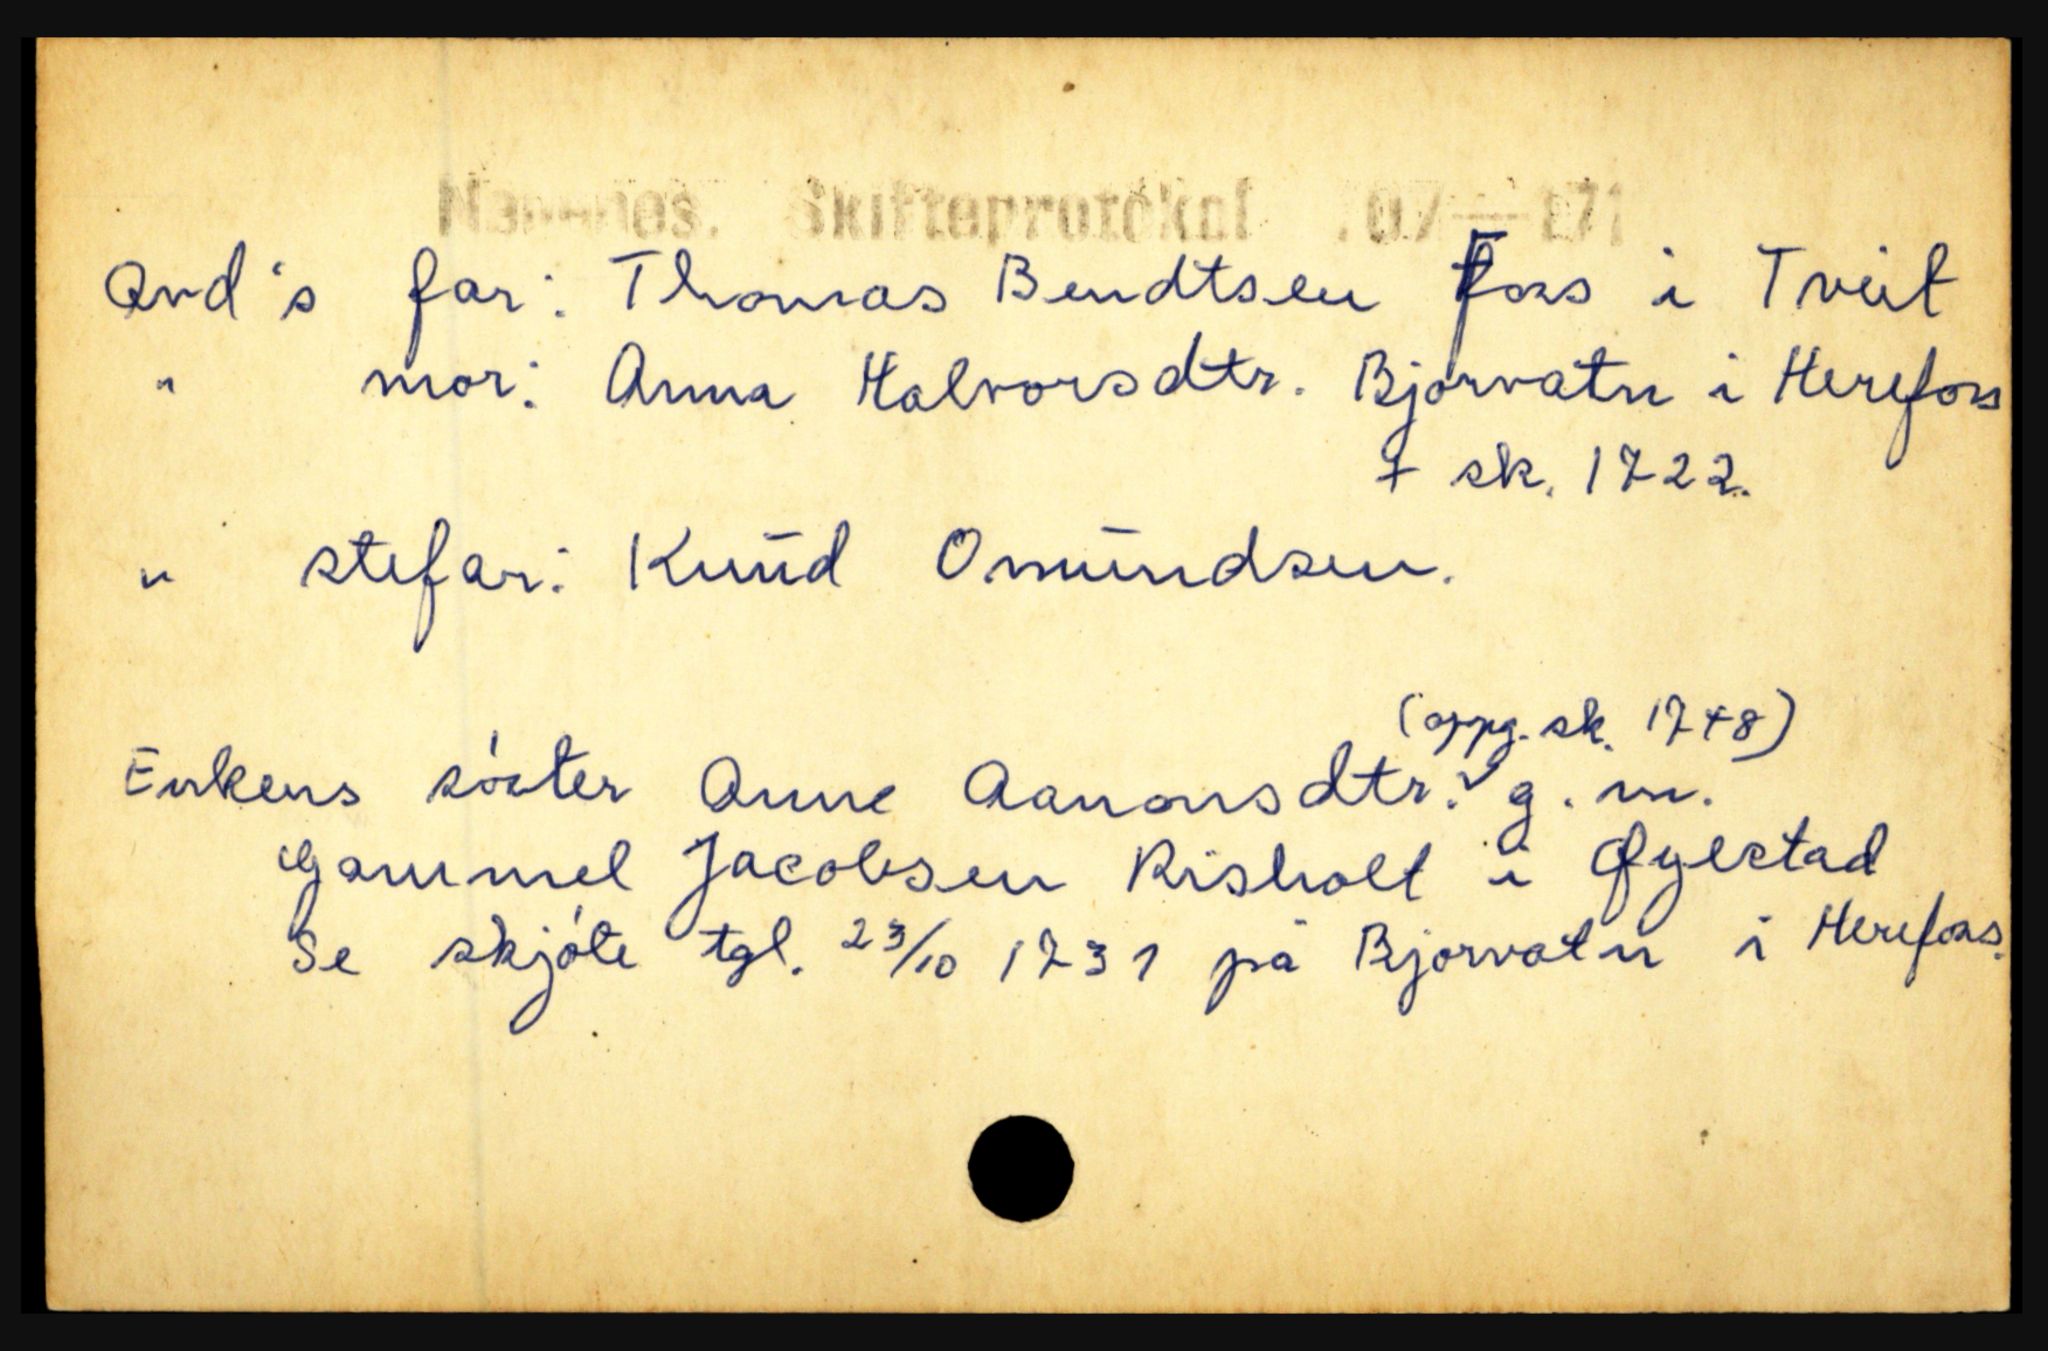 Skifteprotokol
Avd's far: Thomas Bendtsen Foss i Tveit
" mor: Anna Halvorsdtr. Bjorvatn i Herefoss
† sk. 1722.
" stefar: Knud Omundsen.
(oppg. sk. 1748)
Enkens söster Anne Aanonsdtr. g. m.
gammel Jacobsen Risholt i Øyestad
Se skjöte tgl. 23/10 1731 på Bjorvatn i Herefoss.